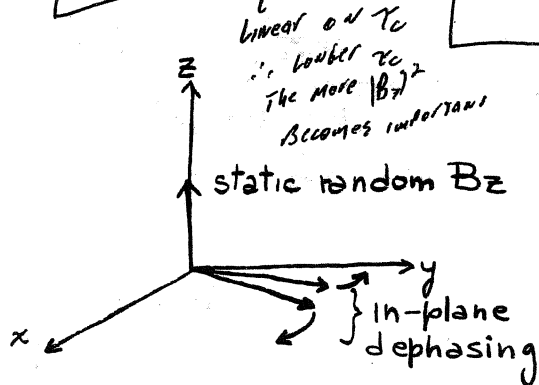 Linear on τc
∴ longer τc
The more |Bz|²
Becomes important
z
static random Bz
y
in-plane
dephasing
x